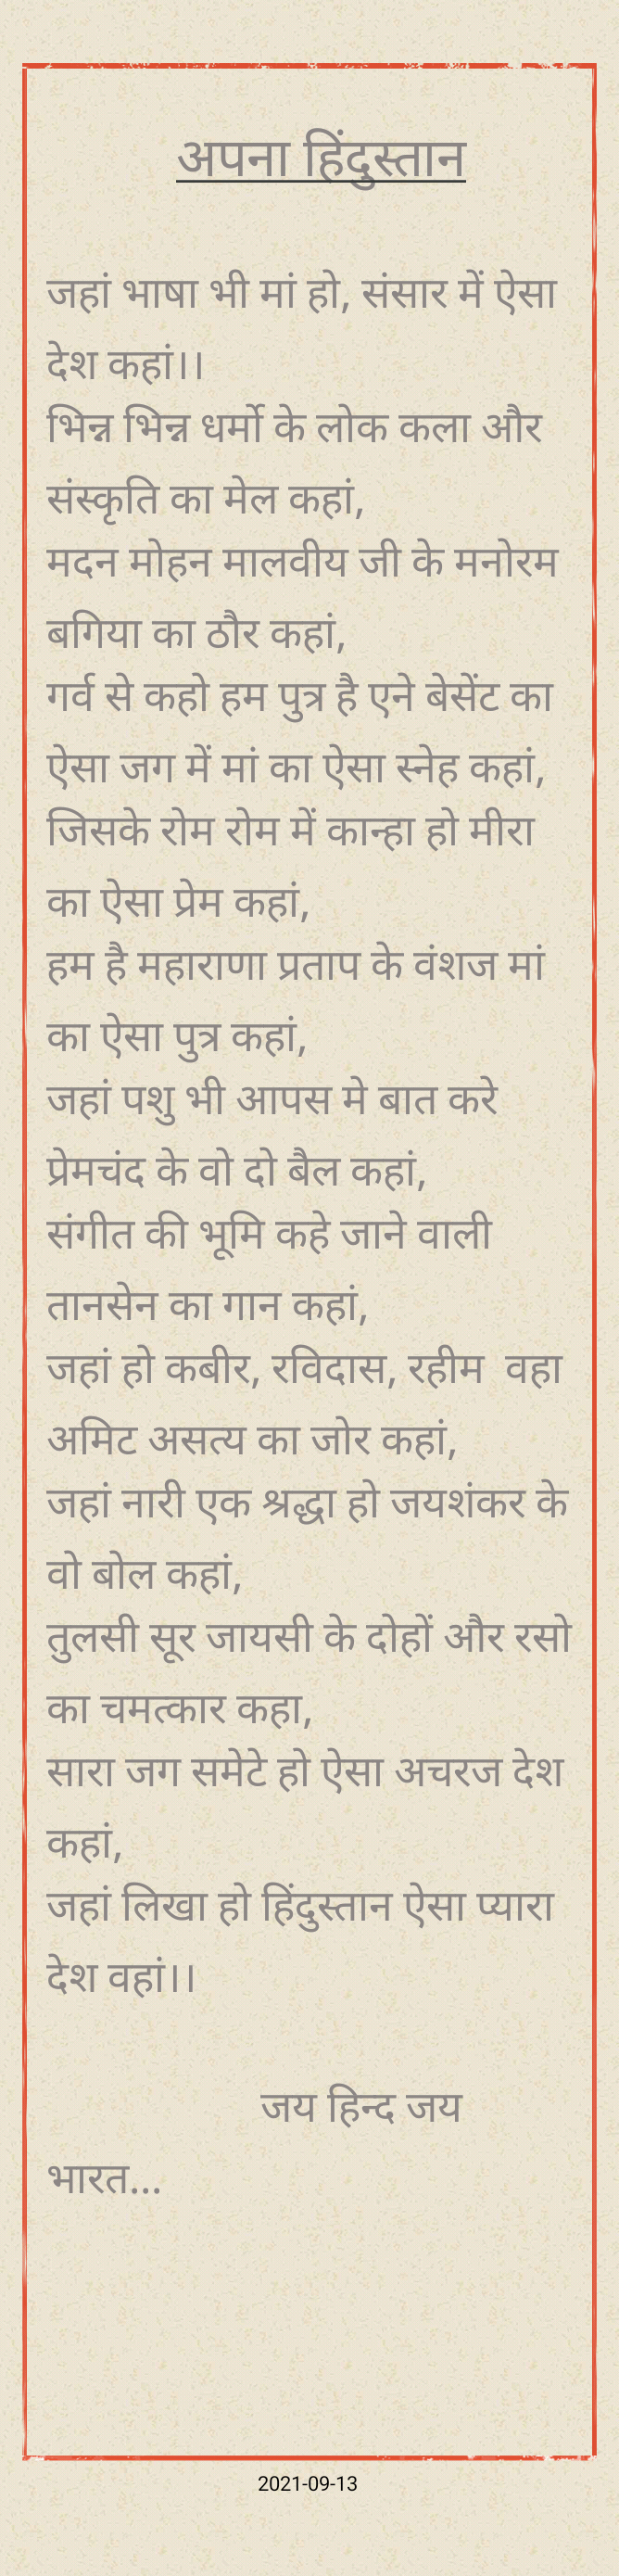 अपना हिंदुस्तान
जहां भाषा भी मां हो, संसार में ऐसा
देश कहां।।
भिन्न भिन्न धर्मो के लोक कला और
संस्कृति का मेल कहां,
मदन मोहन मालवीय जी के मनोरम
बगिया का ठौर कहां,
गर्व से कहो हम पुत्र है एने बेसेंट का
ऐसा जग में मां का ऐसा स्नेह कहां,
जिसके रोम रोम में कान्हा हो मीरा
का ऐसा प्रेम कहां,
हम है महाराणा प्रताप के वंशज मां
का ऐसा पुत्र कहां,
जहां पशु भी आपस मे बात करे
प्रेमचंद के वो दो बैल कहां,
संगीत की भूमि कहे जाने वाली
तानसेन का गान कहां,
जहां हो कबीर, रविदास, रहीम  वहा
अमिट असत्य का जोर कहां,
जहां नारी एक श्रद्धा हो जयशंकर के
वो बोल कहां,
तुलसी सूर जायसी के दोहों और रसो
का चमत्कार कहा,
सारा जग समेटे हो ऐसा अचरज देश
कहां,
जहां लिखा हो हिंदुस्तान ऐसा प्यारा
देश वहां।।
जय हिन्द जय
भारत...
2021-09-13